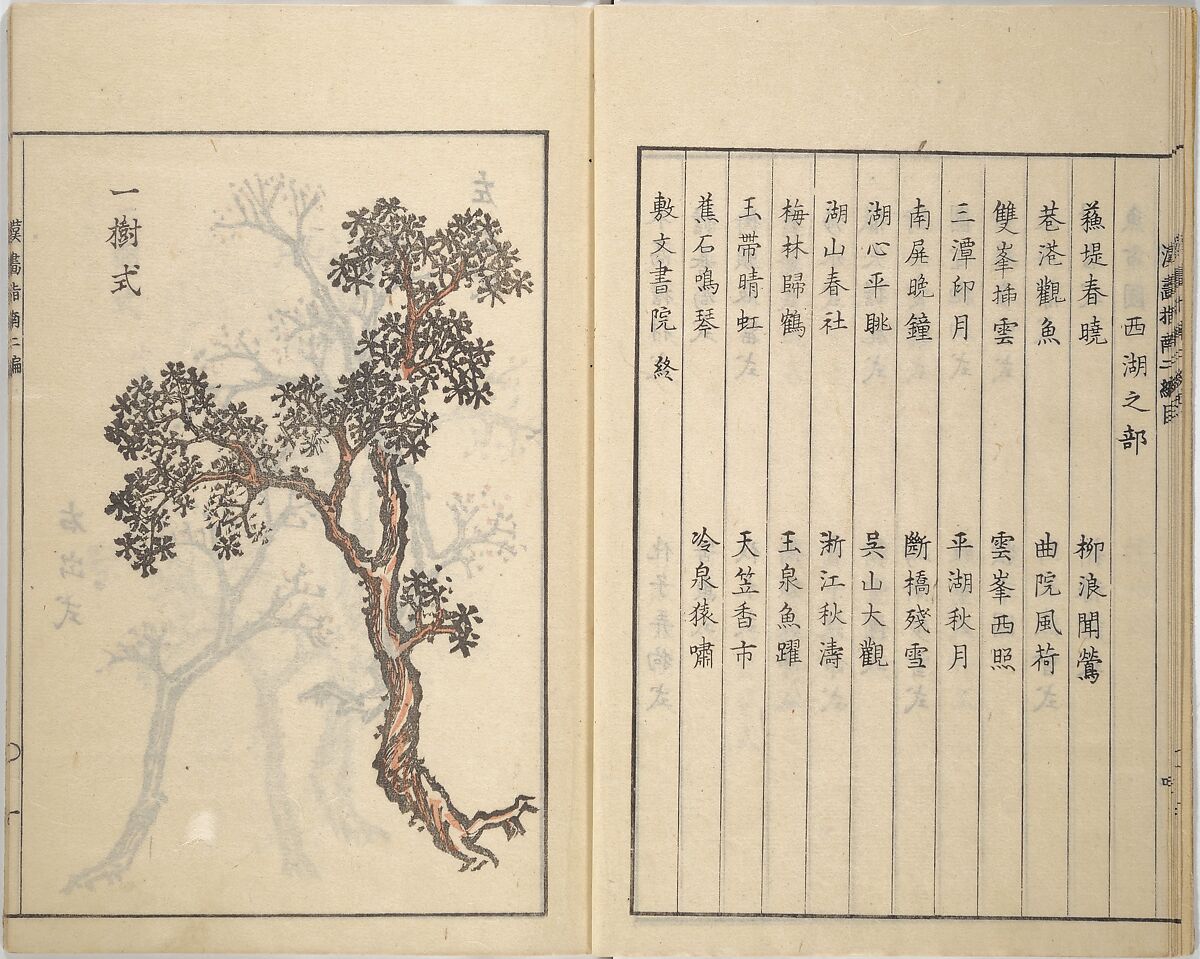 西湖之部
蘓堤春曉
柳浪聞鶯
巷港觀魚
曲院風荷
雙峯插雲
雲峯西照
三潭印月
平湖秋月
南屏晚鐘
斷橋殘雪
湖心平眺
吳山大觀
湖山春社
浙江秋濤
梅林歸鶴
玉泉魚躍
玉帶晴虹
天笠香市
蕉石鳴琴
冷泉猿嘯
敷文書院 終
一樹式
漢畫指南二編
一